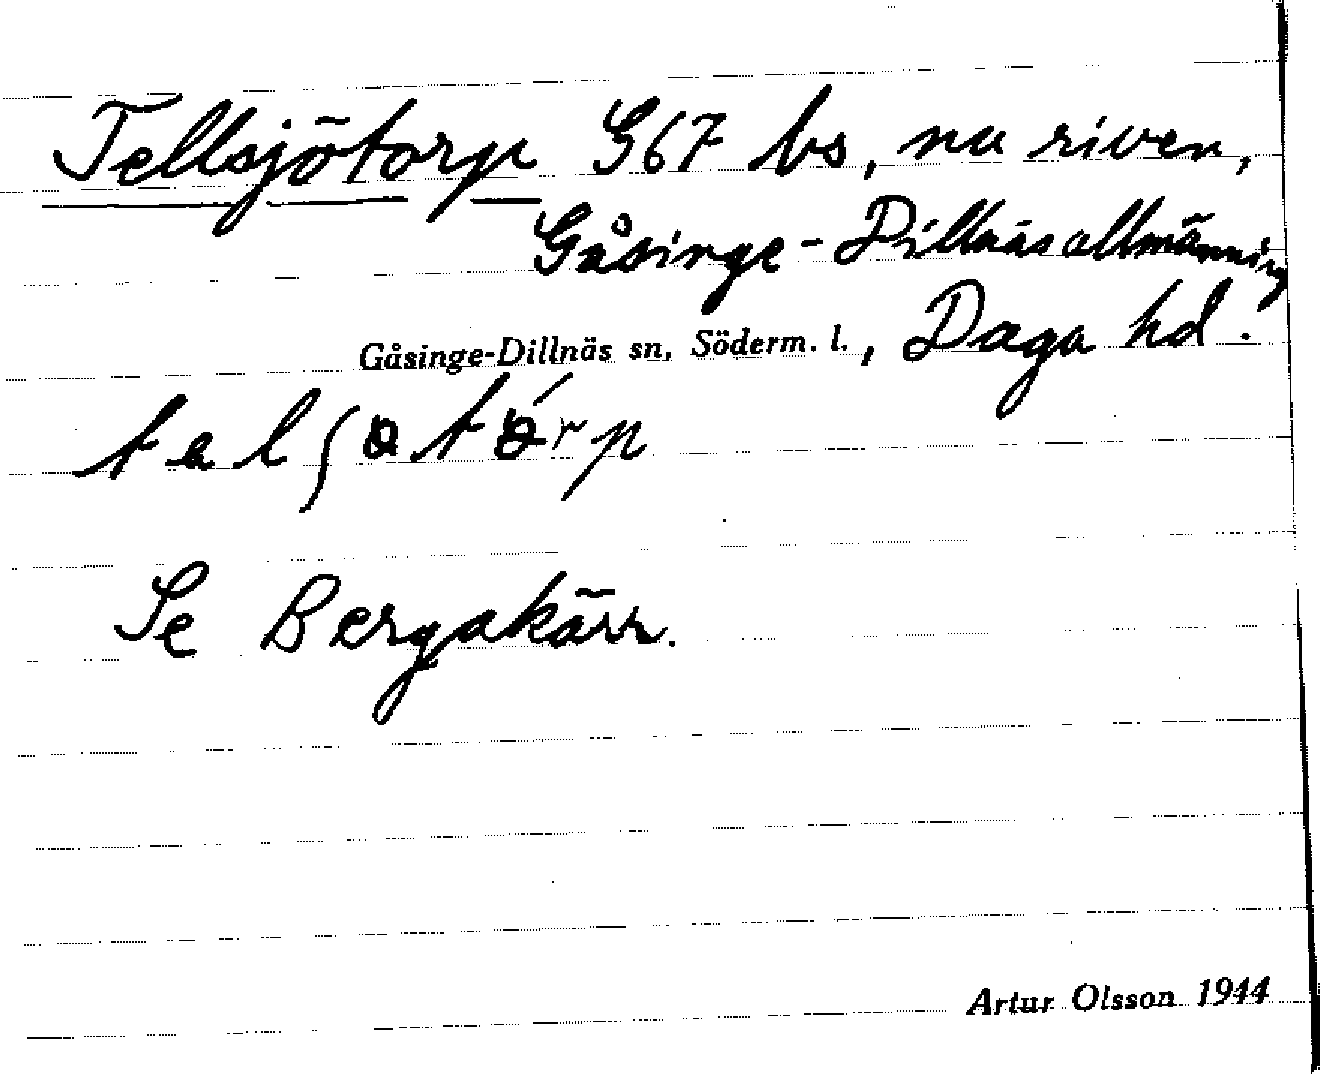 Tellsjötorp G67 bs, nu riven,
Gåsinge-Dillnäs allmänning
Gåsinge-Dillnäs sn, Söderm. l., Daga hd.
Se Bergakärr.
Artur Olsson 1944